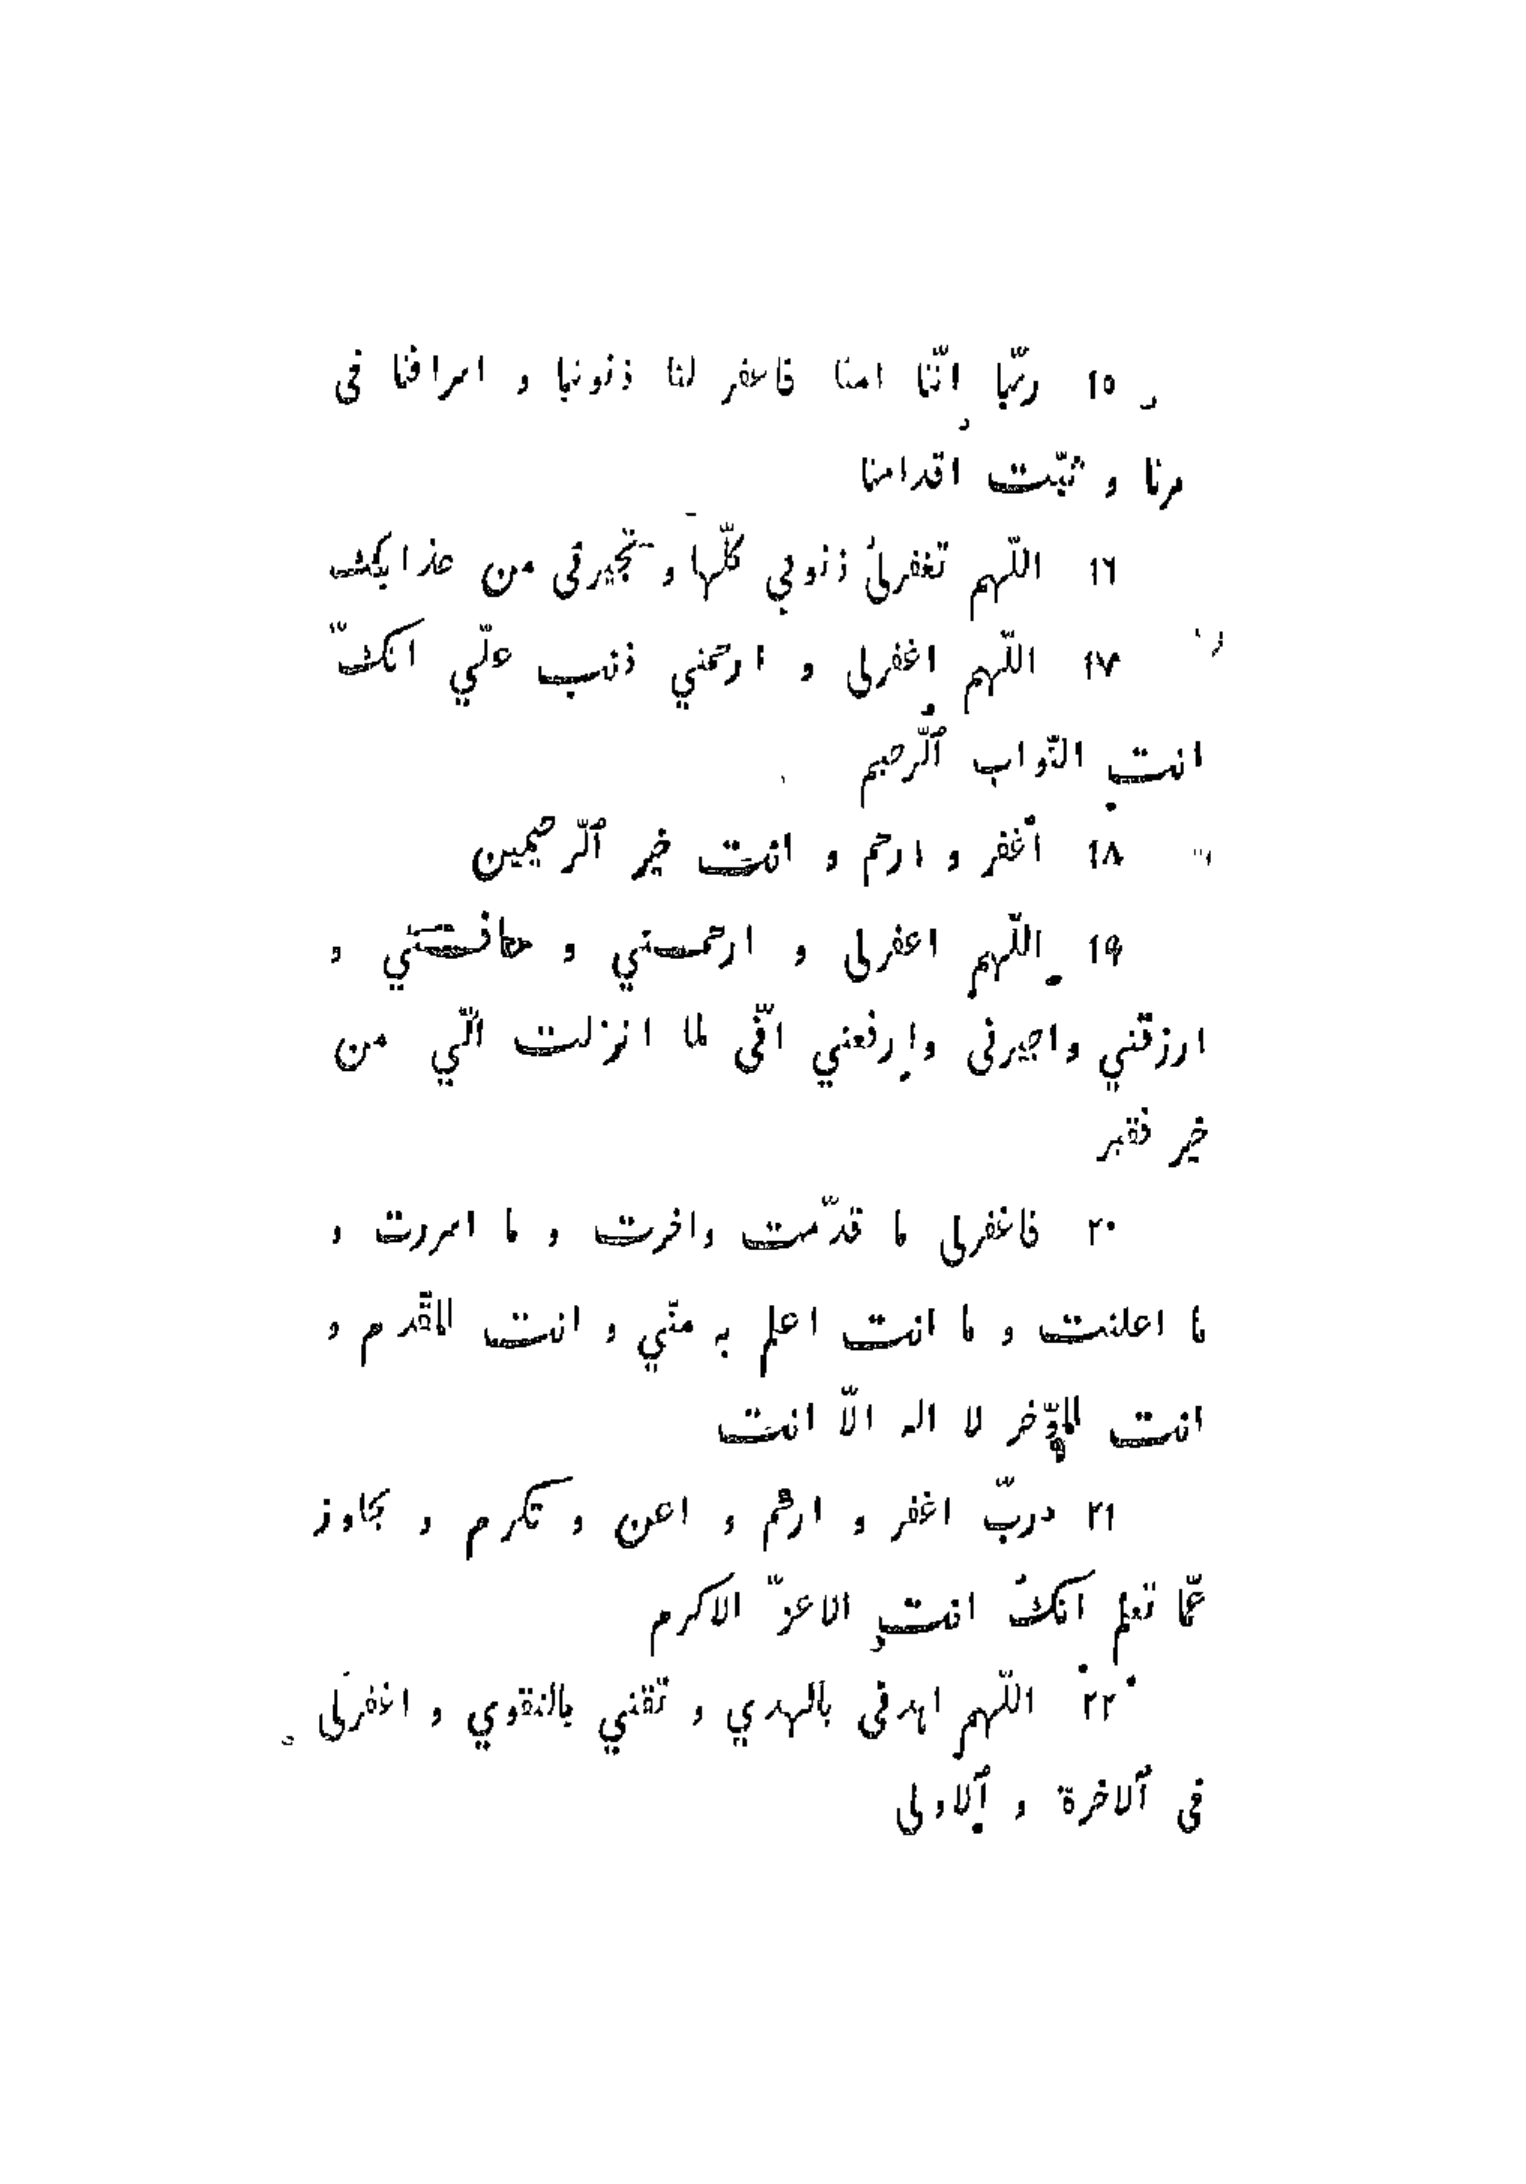 ١٥ ربّنا إنّنا امنا فاعفر لنا ذنوبنا و اسرافنا فى
مرنا و ثبّت اقدامنا
١٦ اللّهم تغفرلى ذنوبي كلّها و تجيرنى من عذابك
١٧ اللّهم اغفرلى و ارحمني ذنب علّي انكّ
انت التّواب ٱلّرحيم
١٨ أغفر و ارحم و انت خير ٱلّرحيمين
١٩ اللّهم اعفرلى و ارحمني و عافني و
ارزقني واجيرنى وارفعني انّى لما انزلت الّي من
خير فقير
٢٠ فاغفرلى ما قدّمت واخرت و ما اسررت و
ما اعلنت و ما انت اعلم به منّي و انت المقّدم و
انت المؤّخر لا اله الاّ انت
٢١ ربّ اغفر و ارحم و اعن و تكرم و تجاوز
عمّا تعلم انك انت الاعزّ الاكرم
٢٢ اللّهم اهدنى بالهدي و تقني بالتقوي و اغفرلى
فى ٱلاخرة و ٱلاولى